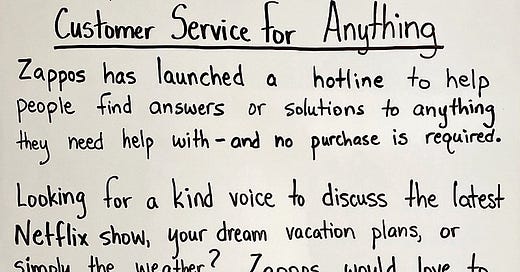 Customer Service for Anything
Zappos has launched a hotline to help
people find answers or solutions to anything
they need help with – and no purchase is required.
Looking for a kind voice to discuss the latest
Netflix show, your dream vacation plans, or
simply the weather? Zappos would love to